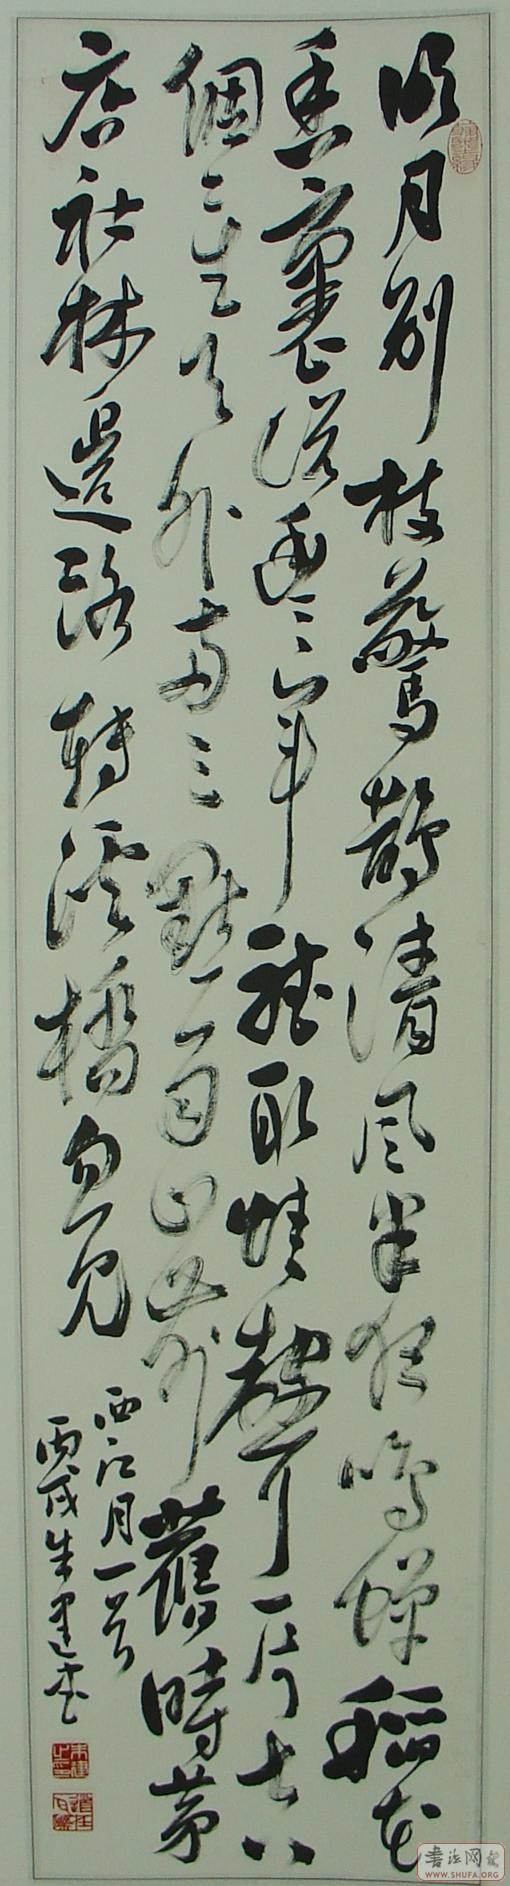 明月別枝驚鵲清風半夜鳴蟬稻花
香裏說豐年聽取蛙聲一片七八
個星天外兩三點雨山前舊時茅
店社林邊路轉溪橋忽見
西江月一首
丙戌朱建書
書法网
WWW.SHUFA.ORG